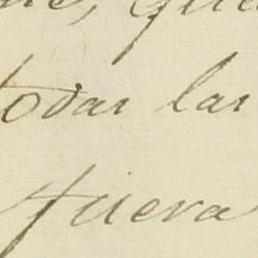 todas las
fuera